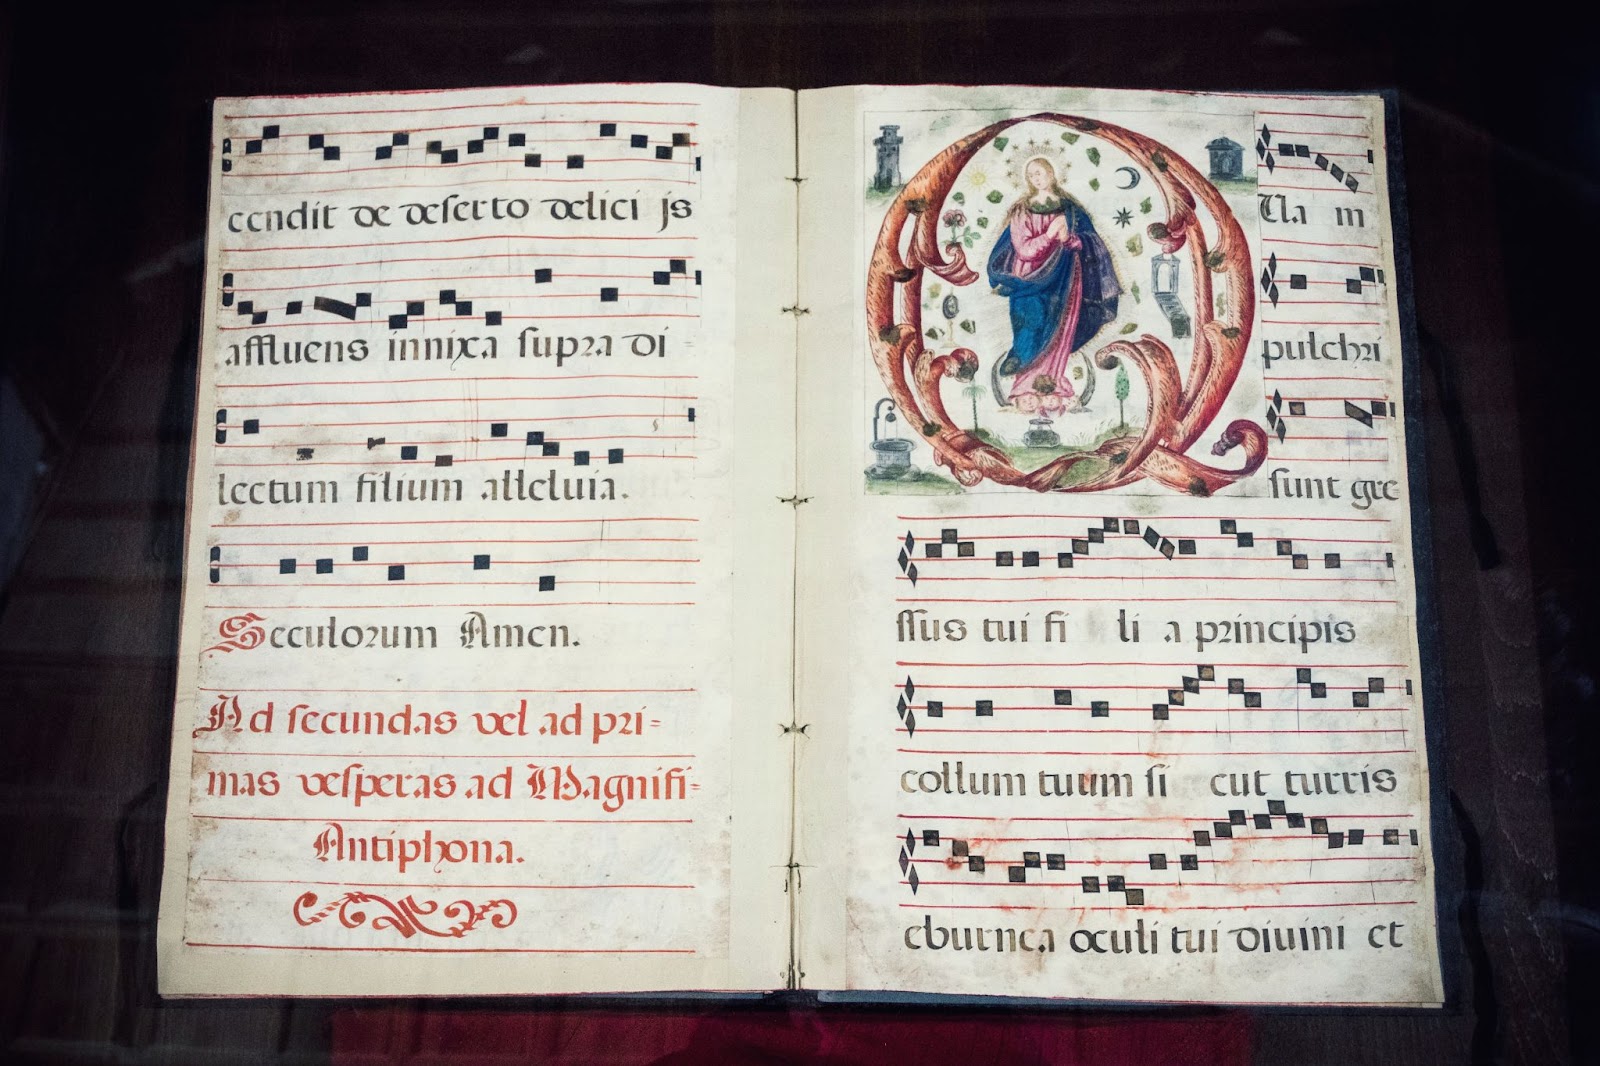 cendit de deserto delici js
affluens innixa supra di=
lectum filium alleluia.
Seculorum Amen.
Ad secundas vel ad pri=
mas vesperas ad Magnifi=
Antiphona.
QUa m
pulchri
sunt gre
ssus tui fi li a principis
collum tuum si cut turris
eburnea oculi tui divini et